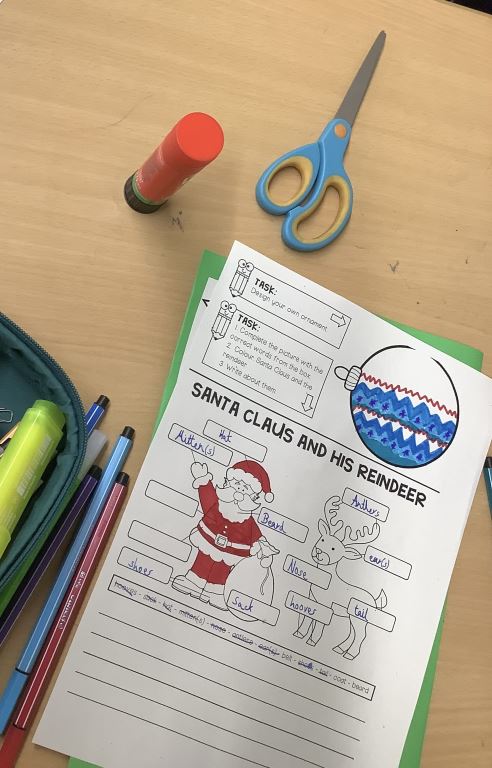 TASK:
Design your own ornament.
TASK:
1. Complete the picture with the
correct words from the box.
2. Colour Santa Claus and the
reindeer
3 Write about them
SANTA CLAUS AND HIS REINDEER
Hat
Mitten(s)
Anthers
Beard
ear(s)
Nose
shoes
Sack
hooves
tail
hooves - sack - hat - mitten(s) - nose - antlers - ear(s) - belt - shoes - tail - coat - beard